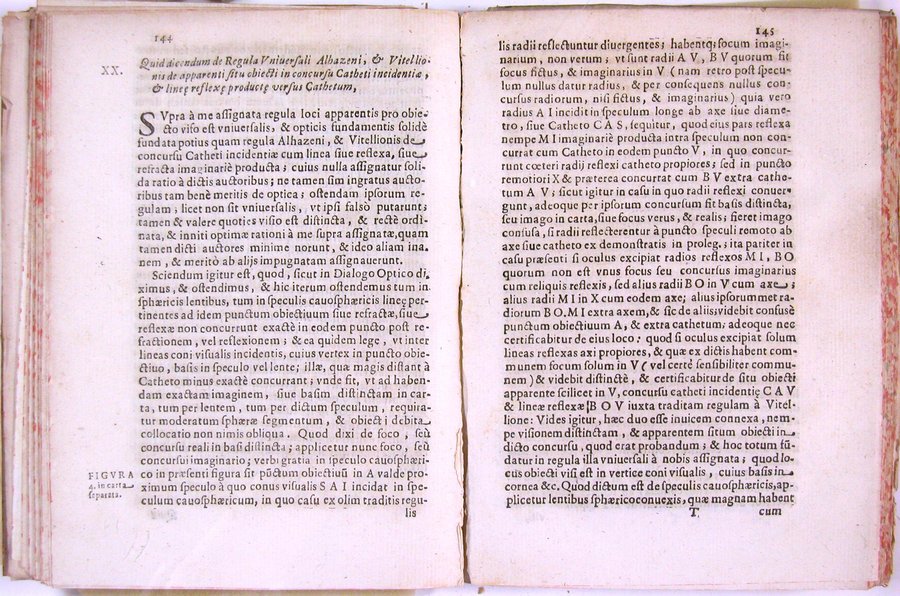 144
XX.
Quid dicendum de Regula Vniuersali Alhazeni, & Vitellio-
nis de apparenti situ obiecti in concursu Catheti incidentiæ,
& lineę reflexę productę versus Cathetum,
SVpra à me assignata regula loci apparentis pro obie-
cto viso est vniuersalis, & opticis fundamentis solidè
fundata potius quam regula Alhazeni, & Vitellionis de
concursu Catheti incidentiæ cum linea siue reflexa, siue
refracta imaginariè producta; cuius nulla assignatur soli-
da ratio à dictis auctoribus; ne tamen sim ingratus aucto-
ribus tam benè meritis de optica; ostendam ipsorum re-
gulam; licet non sit vniuersalis, vt ipsi falsò putarunt;
tamen & valere quoties visio est distincta, & rectè ordi-
nata, & inniti optimæ rationi à me supra assignatæ, quam
tamen dicti auctores minime norunt, & ideo aliam ina-
nem, & meritò ab alijs impugnatam assignauerunt.
Sciendum igitur est, quod, sicut in Dialogo Optico di-
ximus, & ostendimus, & hic iterum ostendemus tum in
sphæricis lentibus, tum in speculis cauosphæricis lineę per-
tinentes ad idem punctum obiectiuum siue refractæ, siue
reflexæ non concurrunt exactè in eodem puncto post re-
fractionem, vel reflexionem; & ea quidem lege, vt inter
lineas coni visualis incidentis, cuius vertex in puncto obie-
ctiuo, basis in speculo vel lente; illæ, quæ magis distant à
Catheto minus exactè concurrant; vnde fit, vt ad haben-
dam exactam imaginem, siue basim distinctam in car-
ta, tum per lentem, tum per dictum speculum, requira-
tur moderatum sphæræ segmentum, & obiecti debita
collocatio non nimis obliqua. Quod dixi de foco, seù
concursu reali in basi distincta; applicetur nunc foco, seu
concursui imaginario; verbi gratia in speculo cauosphæri-
co in præsenti figura sit pūctum obiectiuū in A valde pro-
ximum speculo à quo conus visualis S A I incidat in spe-
culum cauosphæricum, in quo casu ex olim traditis regu-
lis
FIGVRA
4. in carta
separata.
145
lis radii reflectuntur diuergentes; habentq; focum imagi-
narium, non verum; vt sunt radii A V, B V quorum fit
focus fictus, & imaginarius in V (nam retro post specu-
lum nullus datur radius, & per consequens nullus con-
cursus radiorum, nisi fictus, & imaginarius) quia vero
radius A I incidit in speculum longe ab axe siue diame-
tro, siue Catheto C A S, sequitur, quod eius pars reflexa
nempe M I imaginariè producta intra speculum non con-
currat cum Catheto in eodem puncto V, in quo concur-
runt cœteri radii reflexi catheto propiores; sed in puncto
remotiori X & præterea concurrat cum B V extra cathe-
tum A V; sicut igitur in casu in quo radii reflexi conuer-
gunt, adeoque per ipsorum concursum fit basis distincta,
seu imago in carta, siue focus verus, & realis; fieret imago
confusa, si radii reflecterentur à puncto speculi remoto ab
axe siue catheto ex demonstratis in proleg.; ita pariter in
casu præsenti si oculus excipiat radios reflexos M I, B O
quorum non est vnus focus seu concursus imaginarius
cum reliquis reflexis, sed alius radii B O in V cum axe;
alius radii M I in X cum eodem axe; alius ipsorummet ra-
diorum B O. M I extra axem, & sic de aliis; videbit confusè
punctum obiectiuum A, & extra cathetum; adeoque nec
certificabitur de eius loco: quod si oculus excipiat solum
lineas reflexas axi propiores, & quæ ex dictis habent com-
munem focum solum in V (vel certè sensibiliter commu-
nem) & videbit distinctè, & certificabitur de situ obiecti
apparente scilicet in V, concursu catheti incidentię C A V
& lineæ reflexæ B O V iuxta traditam regulam à Vitel-
lione: Vides igitur, hæc duo esse inuicem connexa, nem-
pe visionem distinctam, & apparentem situm obiecti in
dicto concursu, quod erat probandum, & hoc totum fū-
datur in regula illa vniuersali à nobis assignata; quod lo-
cus obiecti visi est in vertice coni visualis, cuius basis in
cornea &c. Quod dictum est de speculis cauosphæricis, ap-
plicetur lentibus sphæricoconuexis, quæ magnam habent
T. cum